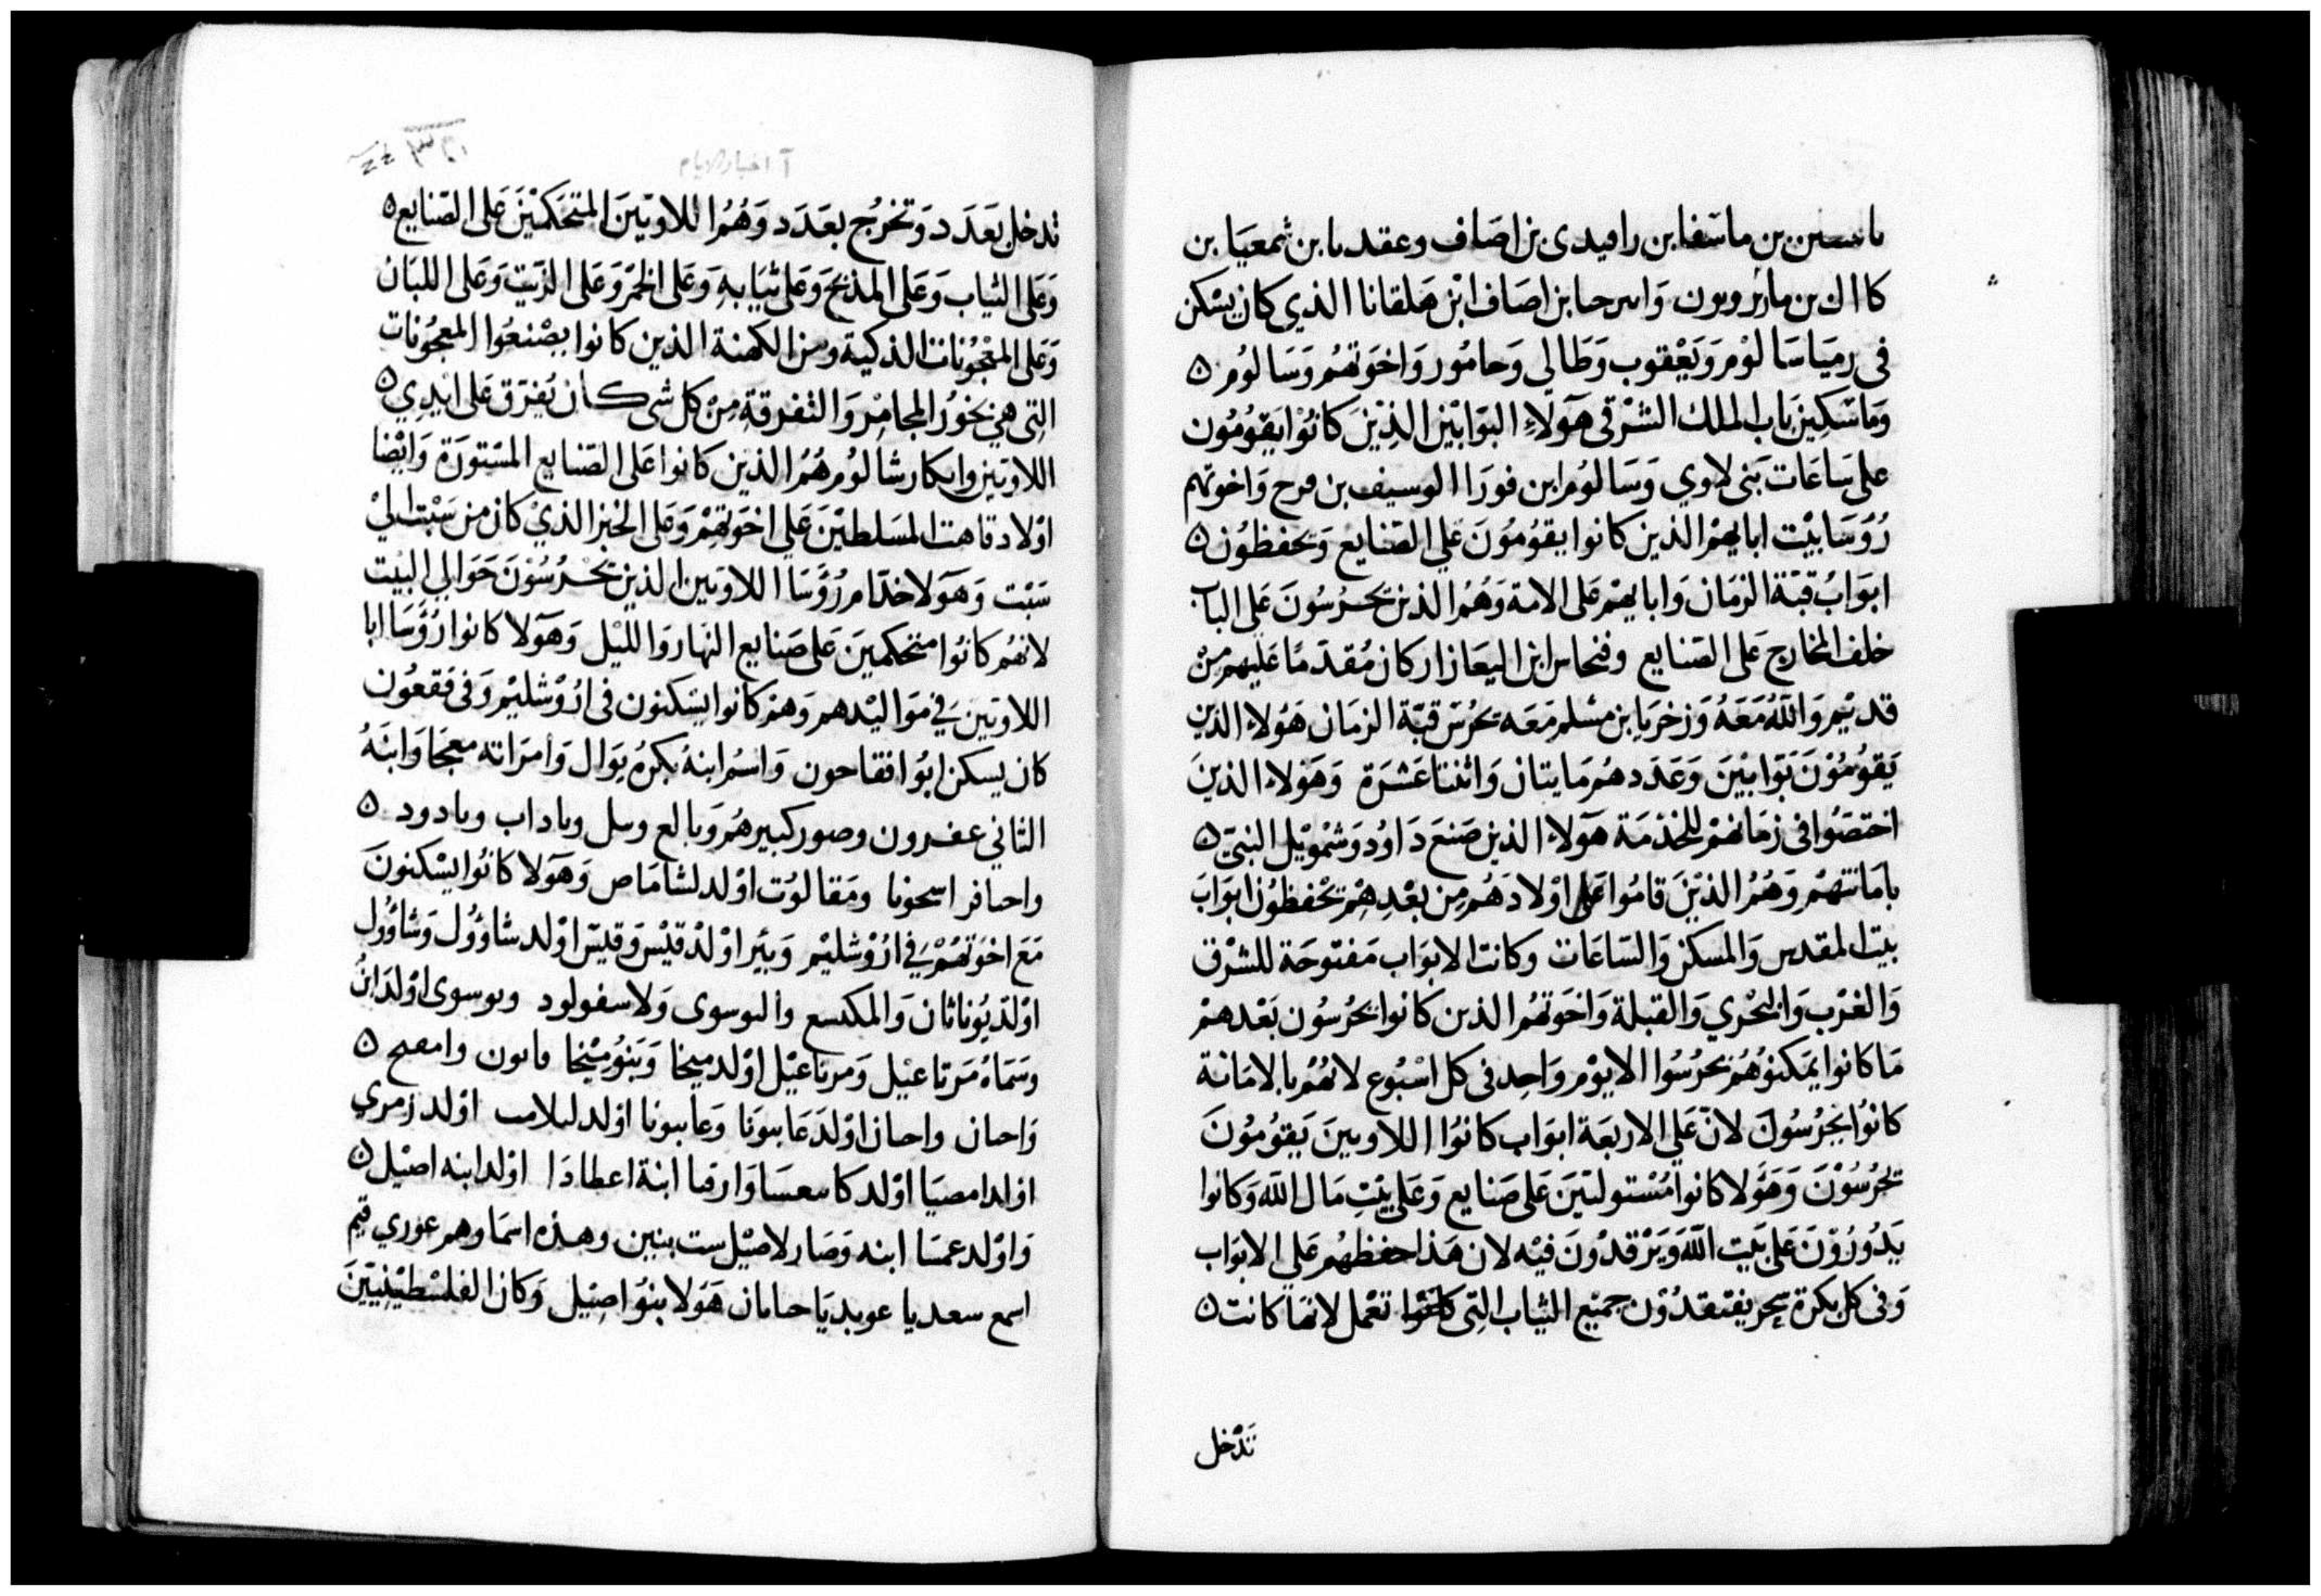 بن ماشفا بن رافيدى بن اصاف وعقد يا بن شمعيا بن
كا ال بن مارثرويون وَابن اصَاف ابْن هَلقانا الذي كان يسْكن
فى رميَا سَالوْم وَيَعْقوب وَطَالى وَحامُور وَاخوَتهُم وَسَالوُم ه
وَمَا سْكِينَ بَاب الملك الشرْقى هَولَاءِ البَوابْين الذِيْنَ كانُوْا يَقوُمُون
على سَاعَات بَنى لاوي وَسَالوُم ابن فورَا الوسيف بن فرح وَاخوتهم
رُؤسَا بيْت ابايهمْ الذين كانوا يقوُمُونَ عَلي الصَّنايع وَيحفظوُن ه
ابوَابُ قبّة الزمَان وَابايهمْ عَلى الامة وَهُمُ الذين يَحرُسُونَ عَلى الباب
خلف المخارج عَلى الصَّنايع وفنحاس ابن اليعَازار كان مُقدمًا عَليهم مِنْ
قديْم وَاللهُ مَعَهُ وَزخرَيا بن مشلم مَعَه يحرُسَ قبّة الزمَان هَوُلاءِ الذين
يَقوُمُوْنَ بَوّابيْنَ وَعَدَدهُم مَايتان وَاثنتا عَشرَة وَهَوْلاءِ الذينَ
اختصّوا فى زمَانهمْ للخدْمَة هَولاءِ الذين صَنعَ دَاوُد وَشمْويْل النبيّ ه
بامَانتهمْ وَهُمُ الذيْنَ قامُوا عَلى اوْلادَهُم مِن بعْدِهِمْ يَحْفظوُن ابوَابَ
بيت المقدس وَالمسكن وَالسّاعَات وكانت الابوَاب مَفتوحَة للشرْق
وَالغرْب وَالبحْري وَالقبلة وَاخوَتهُم الذين كانوا يحْرُسُون بَعْدهمْ
مَا كانوا يمَكنوُهُمْ يحرُسُوا الا يوْم وَاحِد فى كل اسْبُوع لانهُمْ بالامَانة
كانُوا يحْرُسُونَ لانّ عَلي الاربَعَة ابوَاب كانوُا اللاويينَ يَقوُمُونَ
يحْرُسُوْنَ وَهَوُلا كانوا مُسْتولييَنَ عَلى صَنايع وَعَلى بَيْتِ مَال الله وَكانوا
يَدُورُوْنَ عَلى بَيت الله وَيَرْقدُوْنَ فيْه لان هَذا حفظهُم عَلي الابوَاب
وَفى كل بكرة سحر يفتقدُوْن جميْع الثياب التِى كانوُا تعْمل لانهَا كانت ه
تَدْخل
آ اخبار الايام
تدخل بعَدَد وَتخرُج بعَدَد وَهُمُ اللاويّينَ المتحَكميْنَ عَلى الصّنايع ه
وَعَلى الثياب وَعَلى المذبَح وَعَلى ثيَابهِ وَعَلى الخمْر وَعَلى الزيت وَعَلى اللبَانُ
وَعَلى المعْجُونات الذكية ومن الكهنة الذين كانوا يصْنعُوا المعجُونات
التِى هِيَ بخوُر المجامِر وَالتفرقة مِنْ كل شى كان يُفرَق عَلى ايْدِي ه
اللاويّين وابكار شالوُم هُمُ الذيْن كانوا عَلى الصّنايع المسْتورَة وَايْضا
اوْلاد قاهت المسَلطيْنَ عَلي اخوَتهمْ وَعَلى الخبز الذيْ كان من سَبْت الىْ
سَبْت وَهَولا خدّام رُؤسَا اللاويّين الذين يَحْرُسُوْنَ حَوَالي البيْت
لانهُم كانُوا متحَكمينَ عَلى صَنايع النهَار وَالليْل وَهَولا كانوا رُؤسَا ابا
اللاويّين في مَوَاليْدهم وَهمْ كانوا يسَكنون فى ارُوْشليْم وَفى فقعُون
كان يسكن ابُوا فقاحون وَاسْم ابنهُ بكرهُ يوَال وَامرَاته معجَا وَابنَهُ
الثاني عفرون وصور كبيرهُم وَبالع وبل وياداب ويادود ه
واحافر اسحونا ومَقالوُت اوْلد لشامَاص وَهَولا كانُوا يسْكنونَ
مَعَ اخوَتهُمْ فِي ارُوْشليْم وَبيَر اوْلد قيْس وَقيسَ اوْلد شاوُوُل وَشاوُوُل
اوْلد يُوناثان وَالمكسع والوسوى وَلاسفولود وبوسوى اوْلد ابْن
وسَمَاهُ مَرتاعيْل وَمرتاعيْل اوْلد ميخا وَبَنوُ ميْخا فانون وامعح ه
وَاحان واحان اوْلدَ عَابونا وَعابونا اوْلد لبلامت اوْلد زمري
اوْلد امصيَا اوْلد كا معسَا وَارفا ابنة اعطادَا اوْلد ابنه اصيْل ه
وَاوْلد عمسَا ابنه وَصَار لاصيْل ست بنيْن وهذه اسمَاوهم عوري قيم
اسمع سعديا عوبديَا حانان هَوُلا بنوُ اصِيْل وَكان الفلسْطيْنِييْنَ